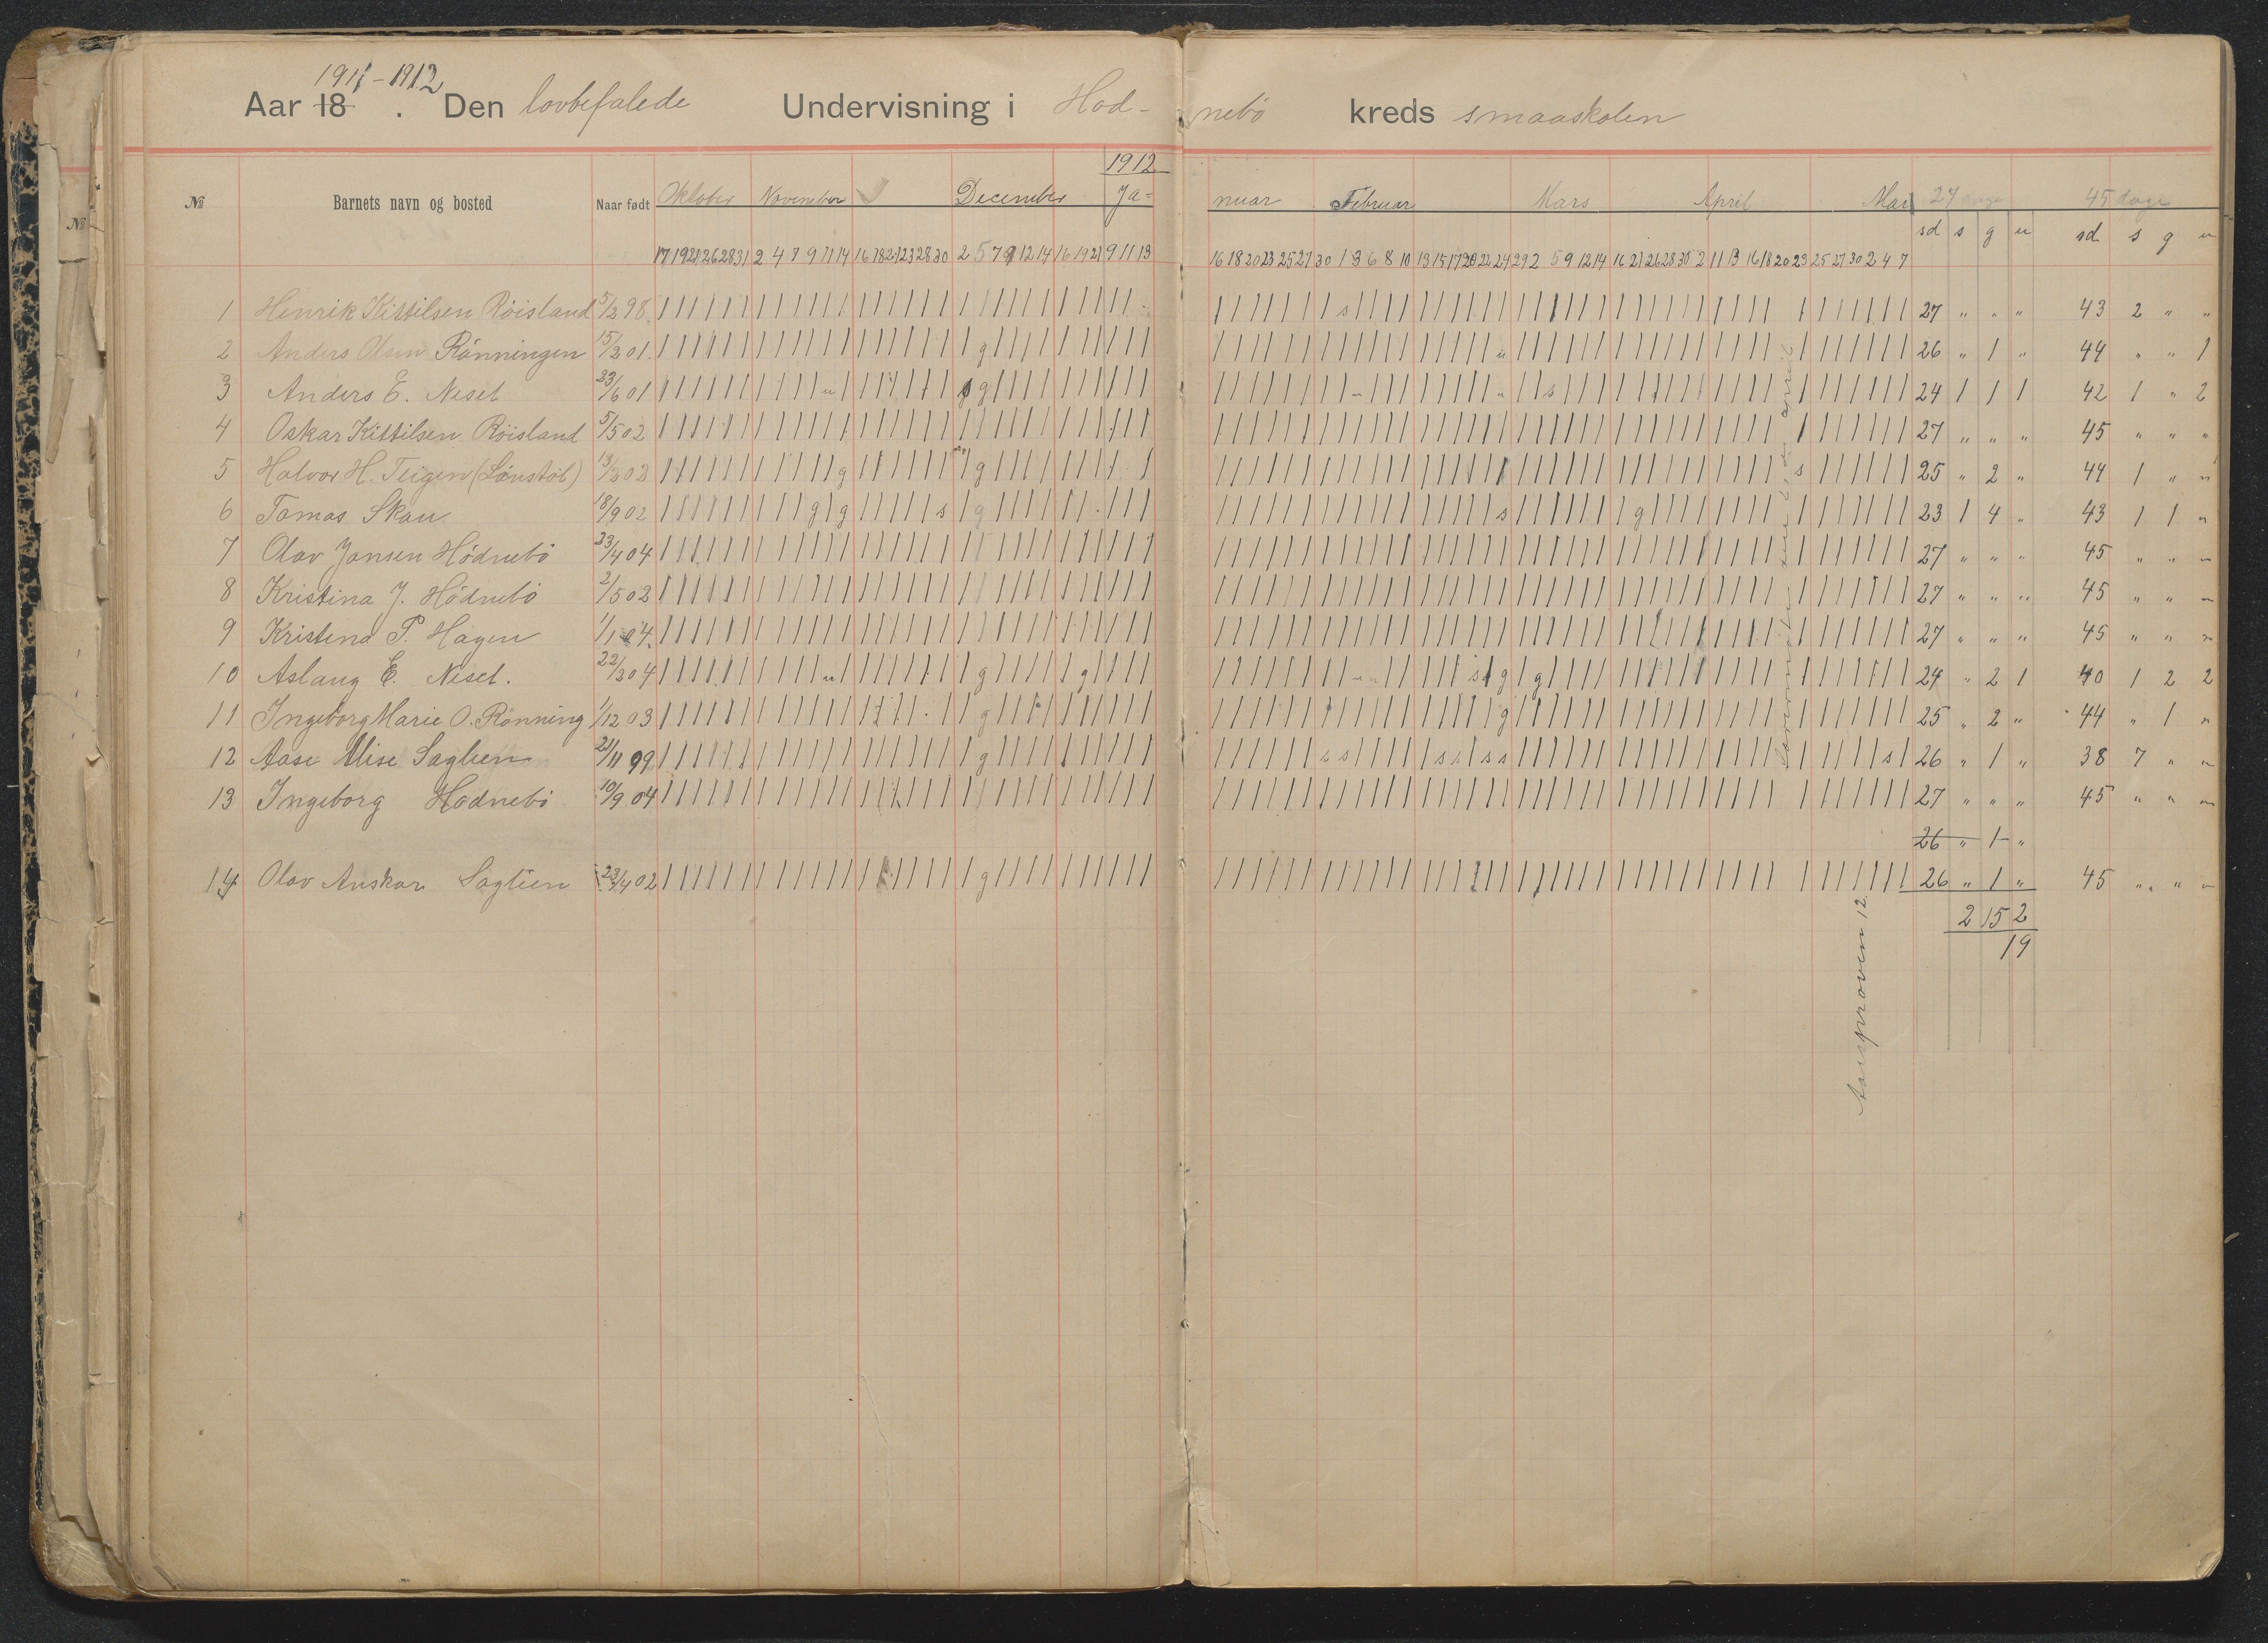 1911-1912
Aar 18 . Den lovbefalede Undervisning i Hød- nebö kreds smaaskolen
1912
№ Barnets navn og bosted Naar født Oktober November December Ja- nuar Februar Mars April Mai 27 dage 45 dage
sd s g u sd s g u
17 19 21 26 28 31 2 4 7 9 11 14 16 18 21 23 28 30 2 5 7 9 12 14 16 19 21 9 11 13 16 18 20 23 25 27 30 1 3 6 8 10 13 15 17 20 22 24 29 2 5 9 12 14 16 21 26 28 30 2 11 13 16 18 20 23 25 27 30 2 4 7
1 Henrik Kittilsen Röisland 5/2 98 27 " " " 43 2 " "
2 Anders Olsen Rönningen 15/3 01 g u 26 " 1 " 44 " " 1
3 Anders E. Neset 23/6 01 u g g u u s 24 1 1 1 42 1 " 2
4 Oskar Kittilsen Röisland 5/5 02 27 " " " 45 " " "
5 Halvor H. Teigen (Lönstöl) 13/3 02 g g s 25 " 2 " 44 1 " "
6 Tomas Skau 18/9 02 g g s g s g 23 1 4 " 43 1 1 "
7 Olav Jansen Hödnebö 23/4 04 27 " " " 45 " " "
8 Kristina J. Hödnebö 2/5 02 27 " " " 45 " " "
9 Kristena P. Hagen 1/1 04 27 " " " 45 " " "
10 Aslaug E. Neset. 22/3 04 u g g u u s g g 24 " 2 1 40 1 2 2
11 Ingeborg Marie O. Rönning 1/12 03 g g 25 " 2 " 44 " 1 "
12 Aase Alise Saglien 21/11 99 g s s s s s s s 26 " 1 " 38 7 " "
13 Ingeborg Hödnebö 10/9 04 27 " " " 45 " " "
26 " 1 "
14 Olav Anskar Saglien 23/4 02 g 26 " 1 " 45 " " "
2 15 2
19
Aarsprøven 12